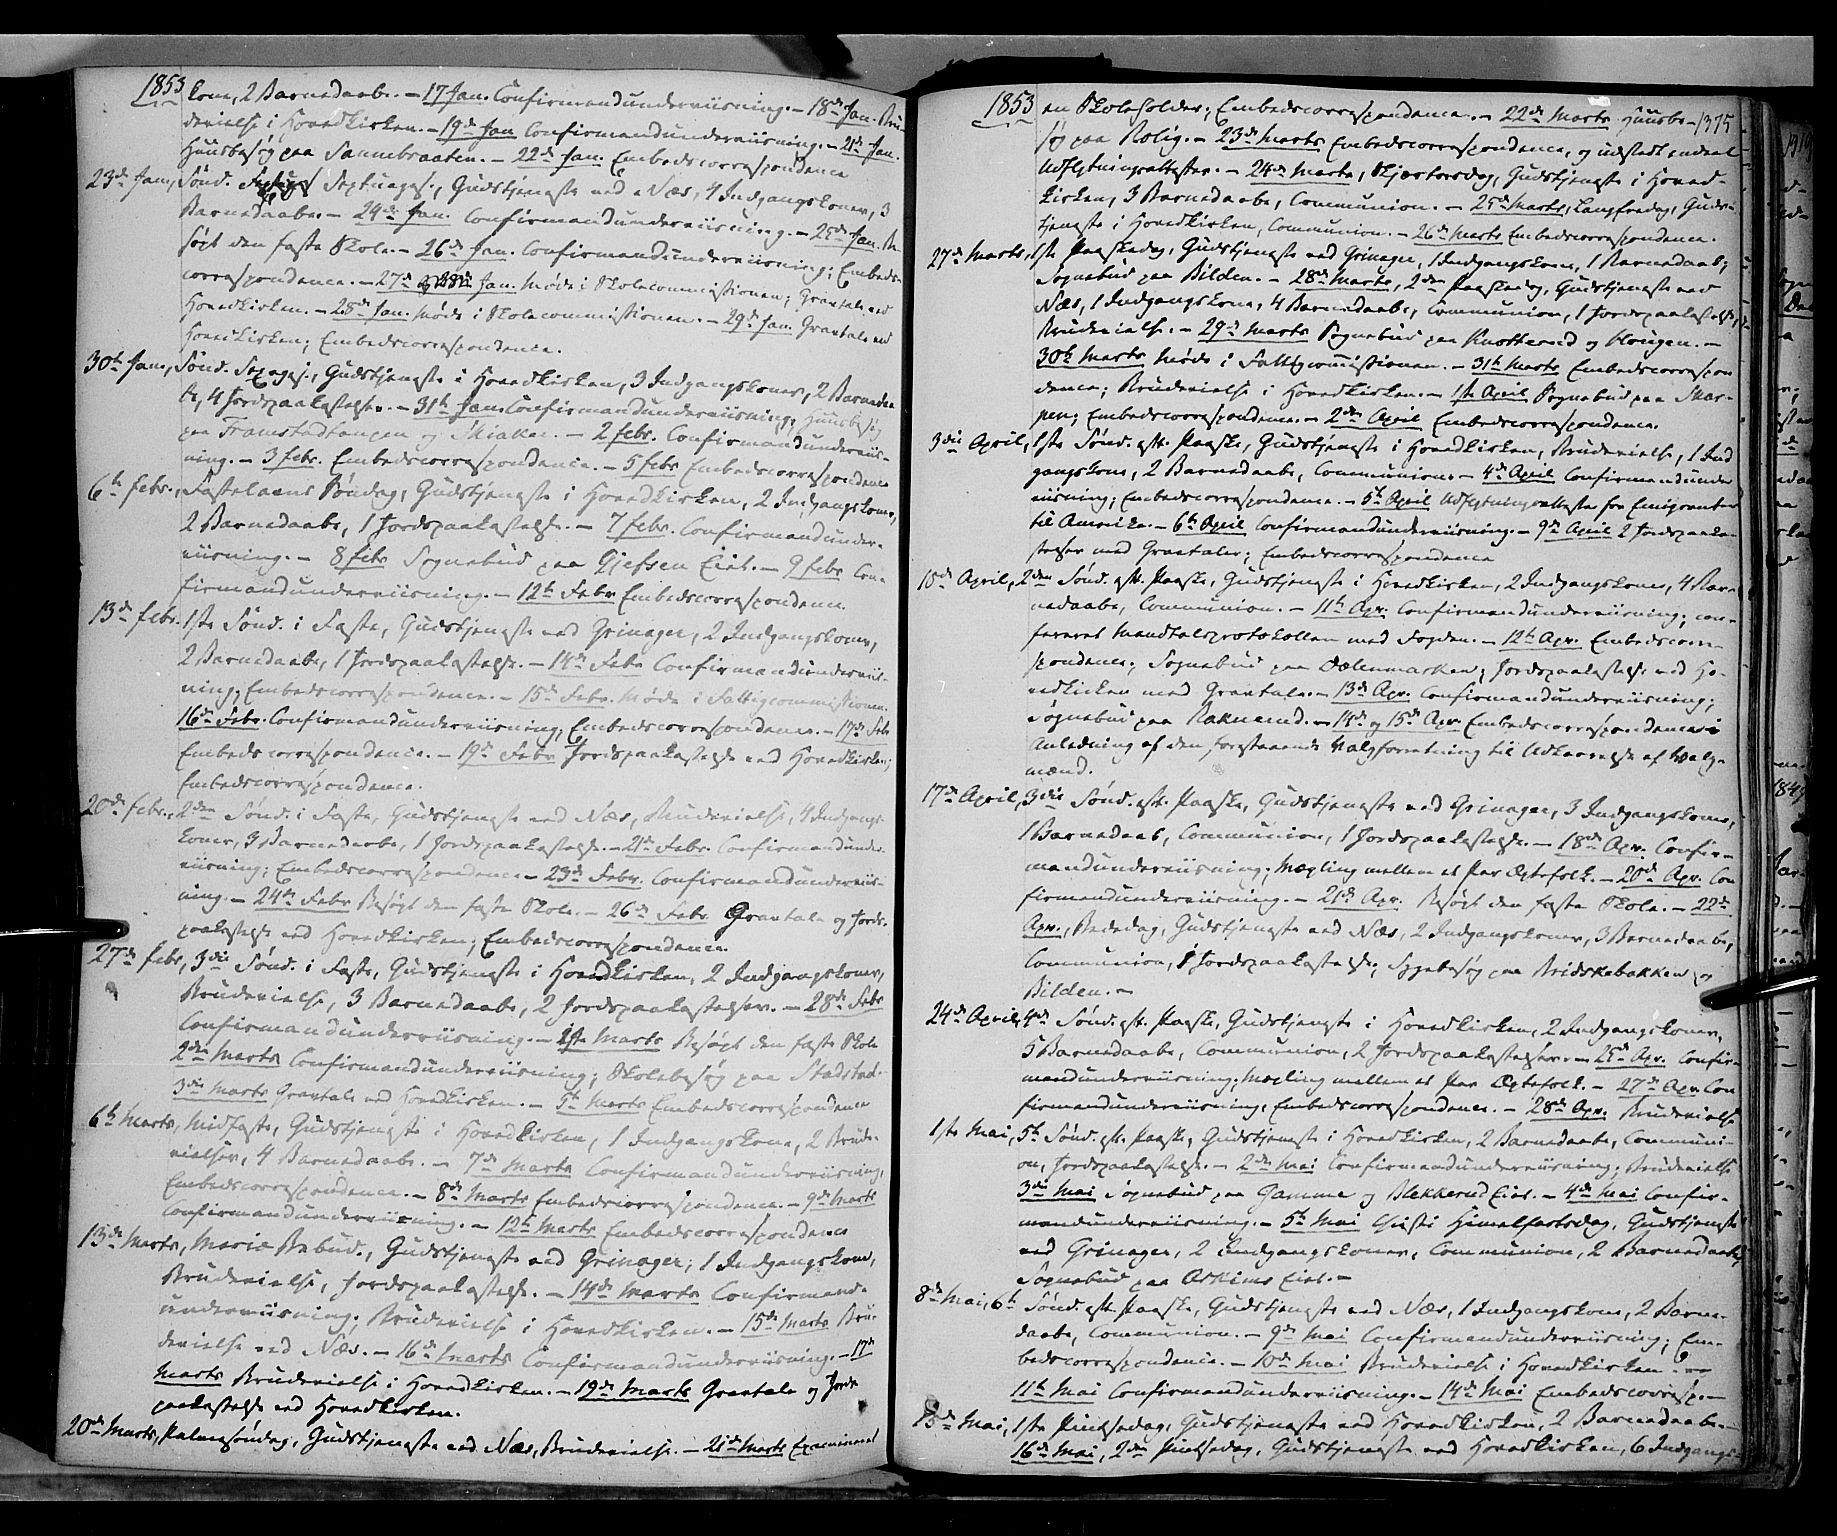 1853
kone, 2 Barnedaabe. – 17 Jan. Confirmandunderviisning. – 18de Jan. Bru-
devielse i Hovedkirken. – 19de Jan Confirmandunderviisning. – 21de Jan.
Huusbesøg paa Sannebraaten. – 22de Jan. Embedscorrespondence
23de Jan, Sønd. Septuages., Gudstjeneste ved Næs, 4 Indgangskoner, 3
Barnedaabe. – 24de Jan. Confirmandunderviisning. – 25de Jan. Be-
søgt den faste Skole. – 26de Jan. Confirmandunderviisning; Embeds-
correspondence. – 27de Jan. Møde i Skolecommissionen; Gravtale ved
Hovedkirken. – 28de Jan. Møde i Skolecommissionen. – 29de Jan. Gravtale ved
Hovedkirken; Embedscorrespondence.
30te Jan., Sønd. Sexages., Gudstjeneste i Hovedkirken, 3 Indgangskoner, 2 Barnedaa-
be, 4 Jordspaakastelser. – 31te Jan. Confirmandunderviisning; Huusbesøg
paa Framstadtangen og Skiaker. – 2 febr. Confirmandunderviis-
ning. – 3 febr. Embedscorrespondence. – 5 febr Embedscorrespondence
6te febr., Fastelavns Søndag, Gudstjeneste i Hovedkirken, 2 Indgangskoner,
2 Barnedaabe, 1 Jordspaakastelse. – 7 febr. Confirmandunder-
viisning. – 8 febr Sognebud paa Gjefsen Eiet. – 9 febr Con-
firmandunderviisning. – 12te Febr Embedscorrespondence
13de febr. 1ste Sønd. i Faste, Gudstjeneste ved Grinager, 2 Indgangskoner,
2 Barnedaabe, 1 Jordspaakastelse. – 14de Febr Confirmandunderviis-
ning; Embedscorrespondence. – 15de Febr. Møde i Fattigcommissionen.
16de Febr. Confirmandunderviisning, Embedscorrespondence. – 17de Febr
Embedscorrespondence. – 19de Febr Jordspaakastelse ved Hovedkirken;
Embedscorrespondence.
20de febr., 2den Sønd. i Faste, Gudstjeneste ved Næs, Brudevielse, 4 Indgangs-
koner, 3 Barnedaabe, 1 Jordspaakastelse. – 21de Febr. Confirmandunder-
viisning; Embedscorrespondence – 23de Febr. Confirmandunderviis-
ning. – 24de Febr Besøgt den faste Skole. – 26de Febr Gravtale og Jords-
paakastelse ved Hovedkirken; Embedscorrespondence.
27de febr, 3die Sønd. i Faste, Gudstjeneste i Hovedkirken, 2 Indgangskoner,
Brudevielse, 3 Barnedaabe, 2 Jordspaakastelser. – 28de Febr
Confirmandunderviisning. – 1ste Marts Besøgt den faste Skole
2den Marts Confirmandunderviisning; Skolebesøg paa Stadstad.
3die Marts Gravtale ved Hovedkirken. – 5te Marts Embedscorrespondence
6te Marts, Midfaste, Gudstjeneste i Hovedkirken, 1 Indgangskone, 2 Brude-
vielser, 4 Barnedaabe. – 7de Marts Confirmandunderviisning,
Embedscorrespondence. – 8de Marts Embedscorrespondence. – 9de Marts
Confirmandunderviisning. – 12te Marts Embedscorrespondence
13de Marts, Mariæ Bebud., Gudstjeneste ved Grinager; 1 Indgangskone,
Brudevielse, Jordspaakastelse. – 14de Marts Confirmand-
underviisning; Brudevielse i Hovedkirken. – 15de Marts Bru-
devielse ved Næs. – 16de Marts Confirmandunderviisning. – 17de
Marts Brudevielse i Hovedkirken. – 19de Marts Gravtale og Jords-
paakastelse ved Hovedkirken.
20de Marts, Palmesøndag, Gudstjeneste ved Næs, Brudevielse. – 21de Marts Examineret
1853
1375
en Skoleholder; Embedscorrespondence. – 22de Marts Huusbe-
søg paa Rolig. – 23de Marts Embedscorrespondence, og udstedt endeel
Udflytningsattester. – 24de Marts, Skjærtorsdag, Gudstjeneste i Hoved-
kirken, 3 Barnedaabe, Communion. – 25de Marts, Langfredag, Guds-
tjeneste i Hovedkirken, Communion. – 26de Marts Embedscorrespondence.
27de Marts, 1ste Paaskedag, Gudstjeneste ved Grinager, 1 Indgangskone, 1 Barnedaab;
Sognebud paa Bilden. – 28de Marts, 2den Paaskedag, Gudstjeneste ved
Næs, 1 Indgangskone, 4 Barnedaabe, Communion, 1 Jordspaakastelse,
Brudevielse. – 29de Marts Sognebud paa Knotterud og Haugen. –
30te Marts Møde i Fattigcommissionen. – 31te Marts Embedscorrespon-
dence; Brudevielse i Hovedkirken. – 1ste April Sognebud paa Skar-
pen; Embedscorrespondence. – 2den April Embedscorrespondence.
3die April, 1ste Sønd. eft. Paaske, Gudstjeneste i Hovedkirken, Brudevielse, 1 Ind
gangskone, 2 Barnedaabe, Communion. – 4de April Confirmandunder
viisning; Embedscorrespondence. – 5te April Udflytningsattester for Emigranter
til Amerika. – 6te April Confirmandunderviisning. – 9de April 2 Jordspaaka-
stelser med Gravtaler; Embedscorrespondence
10de April, 2den Sønd. eft. Paaske, Gudstjeneste i Hovedkirken, 2 Indgangskoner, 4 Bar-
nedaabe, Communion. – 11te Apr. Confirmandunderviisning; con-
fereret Mandtalsprotokollen med Fogden. – 12te Apr. Embedscorre-
spondence; Sognebud paa Dælenmarken; Jordspaakastelse ved Ho-
vedkirken med Gravtale. – 13de Apr. Confirmandunderviisning;
Sognebud paa Raknerud. – 14de og 15de Apr Embedscorrespondence i
Anledning af den forestaaende Valgforretning til Udkaarelse af Valg-
mænd.
17de April, 3die Sønd. eft. Paaske, Gudstjeneste ved Grinager, 3 Indgangskoner,
1 Barnedaab, Communion, 1 Jordspaakastelse. – 18de Apr. Confir-
mandunderviisning; Mægling mellem et Par Ægtefolk. – 20de Apr. Con
firmandunderviisning. – 21de Apr. Besøgt den faste Skole. – 22de
Apr., Bededag, Gudstjeneste ved Næs, 2 Indgangskoner, 3 Barnedaabe,
Communion, 1 Jordspaakastelse; Sygebesøg paa Bridskebakken og
Bilden. –
24de April, 4de Sønd. eft. Paaske, Gudstjeneste i Hovedkirken, 2 Indgangskoner,
5 Barnedaabe, Communion, 2 Jordspaakastelser. – 25de Apr. Confir-
mandunderviisning; Mægling mellem et Par Ægtefolk. – 27de Apr. Con
firmandunderviisning, Embedscorrespondence. – 28de Apr. Brudevielse
1ste Mai, 5te Sønd. eft. Paaske, Gudstjeneste i Hovedkirken, 2 Barnedaabe, Communi-
on, Jordspaakastelse. – 2den Mai Confirmandunderviisning; Brudevielse
3die Mai Sognebud paa Gamme og Blekkerud Eiet. – 4de Mai Confir-
mandunderviisning. – 5te Mai Christi Himelfartsdag, Gudstjeneste
ved Grinager, 2 Indgangskoner, Communion, 2 Barnedaabe;
Sognebud paa Askims Eiet. –
8de Mai, 6te Sønd. eft. Paaske, Gudstjeneste ved Næs, 1 Indgangskone, 2 Barne-
daabe, Communion. – 9de Mai Confirmandunderviisning; Em-
bedscorrespondence. – 10de Mai Brudevielse i Hovedkirken. –
11te Mai Confirmandunderviisning. – 14de Mai Embedscorresp. –
15de Mai, 1ste Pintsedag, Gudstjeneste ved Hovedkirken, 2 Barnedaabe. –
16de Mai, 2den Pintsedag, Gudstjeneste ved Hovedkirken, 6 Indgangs-